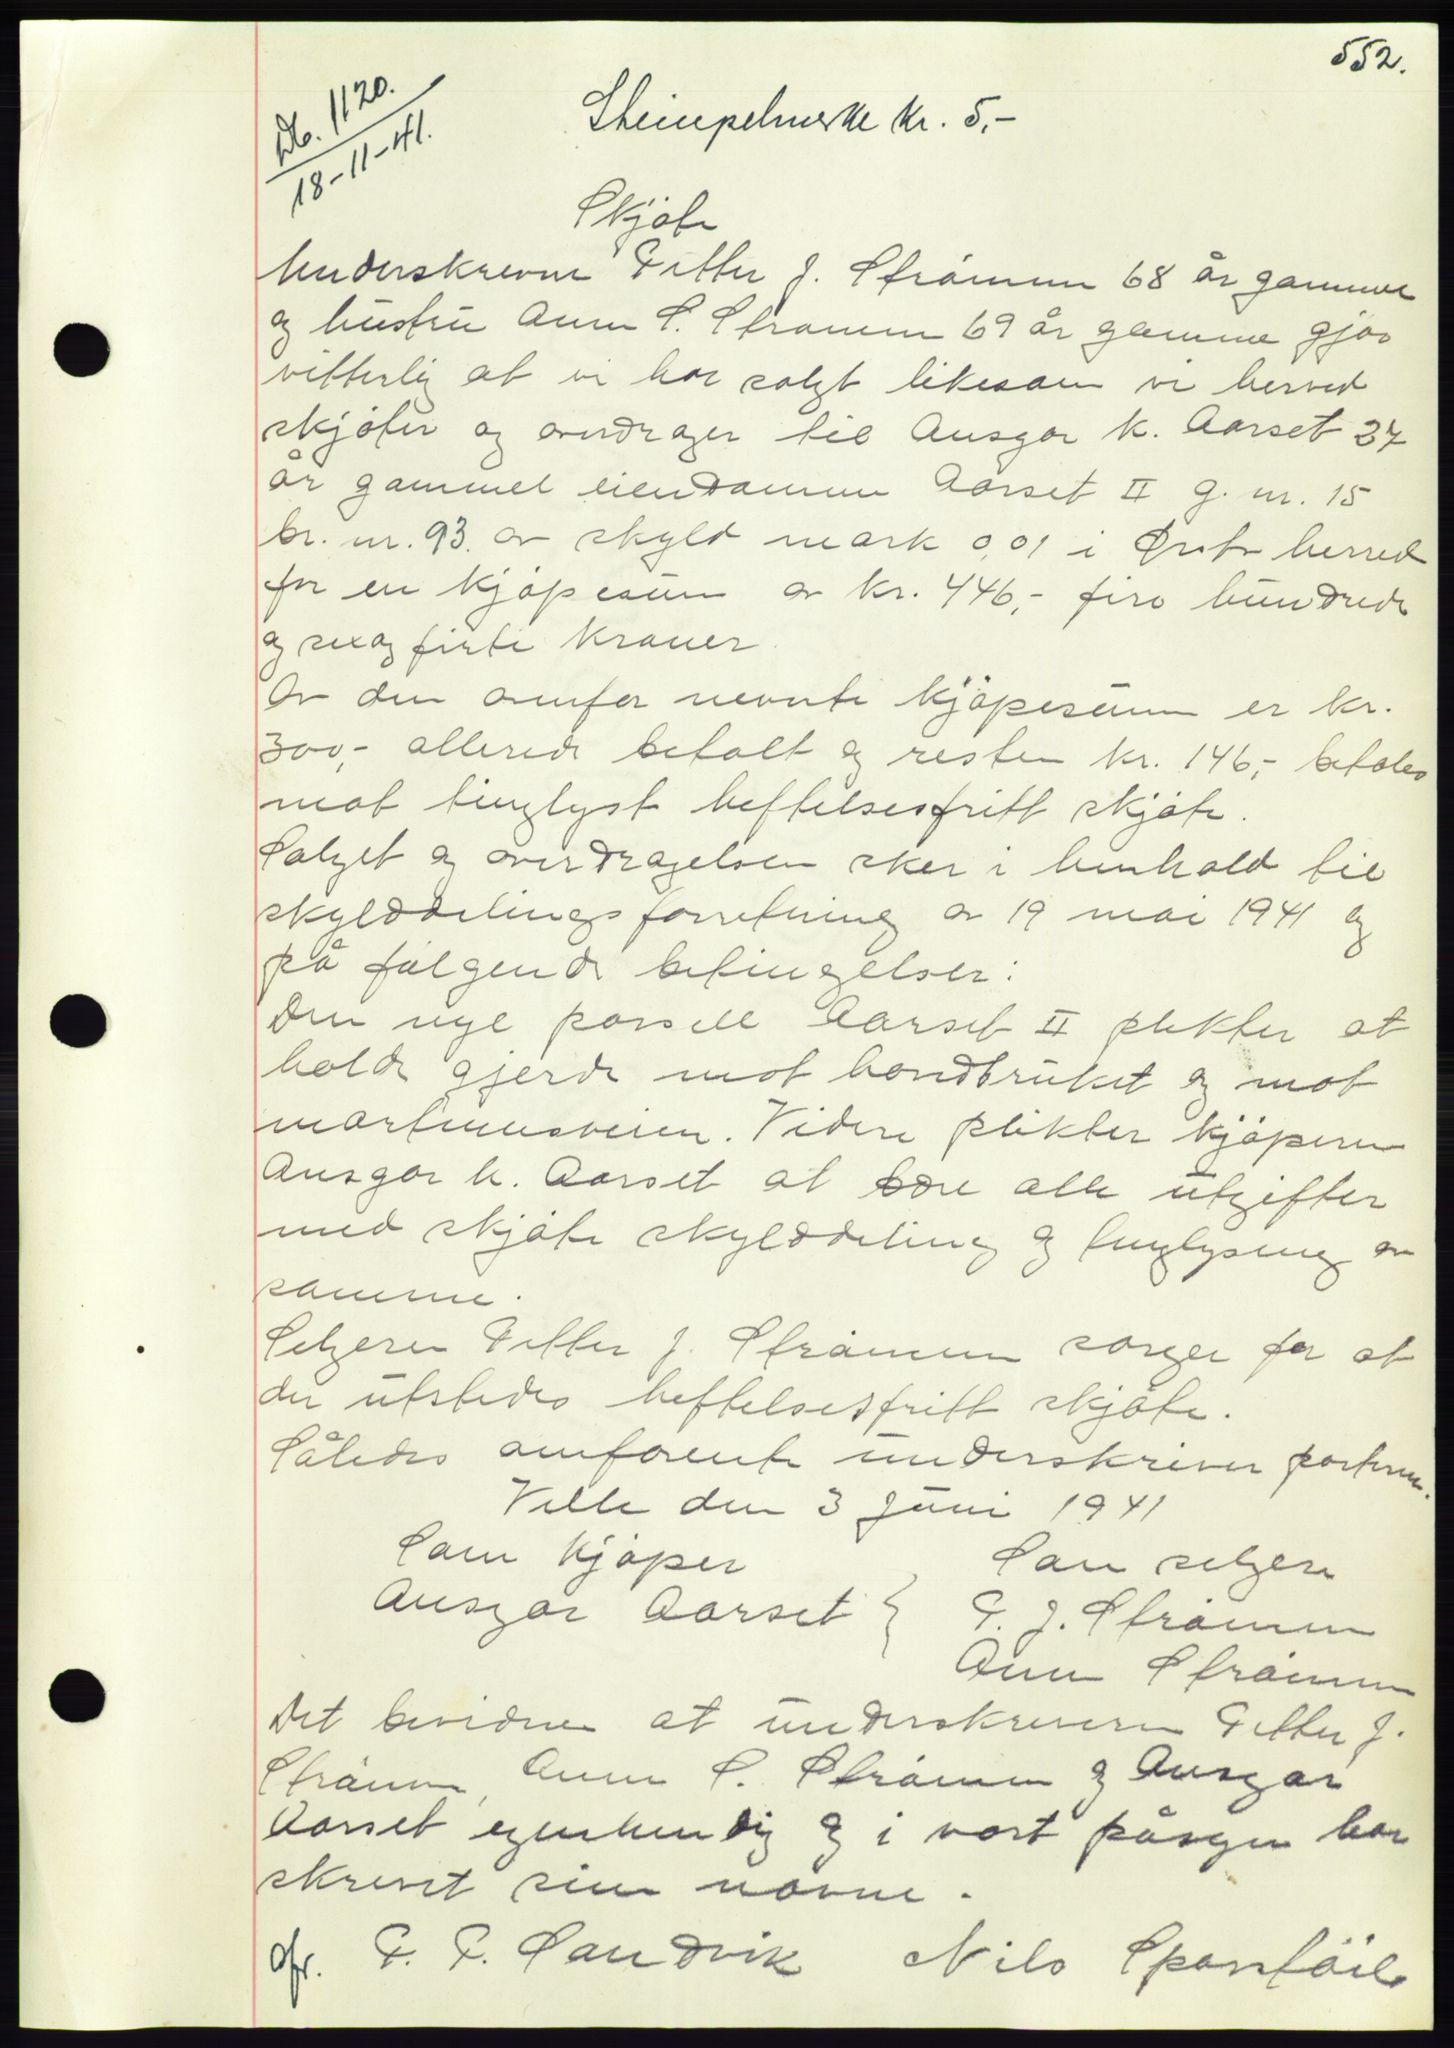 552.
Db. 1120.
18-11-41.
Stempelmerke kr. 5,-
Skjøte
Underskrevne Petter J. Strömmen 68 år gammel
og hustru Anna S. Strømmen 69 år gamme gjør
vitterlig at vi har solgt likesom vi herved
skjøter og overdrager til Ansgar K. Aarset 37
år gammel eiendommen Aarset II g. nr. 15
br. nr. 93. av skyld mark 0,01 i Ørsta herred
for en kjøpesum av kr. 446,- fire hundrede
og sexogfirti kroner.
Av den ovenfor nevnte kjøpesum er kr.
300,- allerede betalt og resten kr. 146,- betales
mot tinglyst heftelsesfritt skjøte.
Salget og overdragelsen sker i henhold til
skylddelingsforretning av 19 mai 1941 og
på følgende betingelser:
Den nye parsell Aarset II plikter at
holde gjerde mot hovedbruket og mot
martinusveien. Videre plikter kjøperen
Ansgar K. Aarset at bære alle utgifter
med skjøte skylddeling og tinglysing av
samme.
Selgeren Petter J. Strömmen sørger for at
der utstedes heftelsesfritt skjøte.
Således omforente underskriver parterne.
Velle den 3 Juni 1941
Som kjøper Som selgere
Ansgar Aarset } P. J. Strömmen
Anna Strömmen
Det bevidnes at underskriveren Petter J.
Strömmen, Anna S. Strömmen og Ansgar
Aarset egenhendig og i vort påsyn har
skrevet sine navne.
P. P. Sandvik Nils